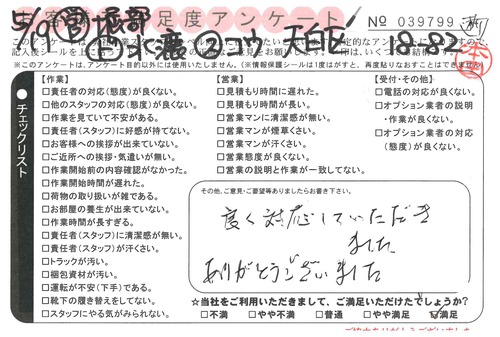 足度アンケート
No 039799
【作業】
□責任者の対応(態度)が良くない。
□他のスタッフの対応(態度)が良くない。
□作業を見ていて不安がある。
□責任者(スタッフ)に好感が持てない。
□お客様への挨拶が出来ていない。
□ご近所への挨拶・気遣いが無い。
□作業開始前の内容確認がなかった。
□作業開始時間が遅れた。
□荷物の取り扱いが雑である。
□お部屋の養生が出来ていない。
□作業時間が長すぎる。
□責任者(スタッフ)に清潔感が無い。
□責任者(スタッフ)が汗くさい。
□トラックが汚い。
□梱包資材が汚い。
□運転が不安(下手)である。
□靴下の履き替えをしてない。
□スタッフにやる気がみられない。
【営業】
□見積もり時間に遅れた。
□見積もり時間が長い。
□営業マンに清潔感が無い。
□営業マンが煙草くさい。
□営業マンが汗くさい。
□営業態度が良くない。
□営業の説明と作業が一致してない。
【受付・その他】
□電話の対応が良くない。
□オプション業者の説明
・作業が良くない。
□オプション業者の対応
(態度)が良くない。
●チェックリスト
その他、ご意見・ご要望等ありましたらお書き下さい。
良く対応していただき
ました
ありがとうございました
☆当社をご利用いただきまして、ご満足いただけたでしょうか?
□不満 □やや不満 □普通 □やや満足 ☑満足